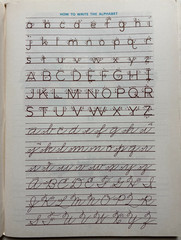 HOW TO WRITE THE ALPHABET
a b c d e f g h i
j k l m n o p q r
s t u v w x y z
A B C D E F G H I
J K L M N O P Q R
S T U V W X Y Z
a b c d e f g h i
j k l m n o p q r
s t u v w x y z
A B C D E F G H I
J K L M N O P Q R
S T U V W X Y Z